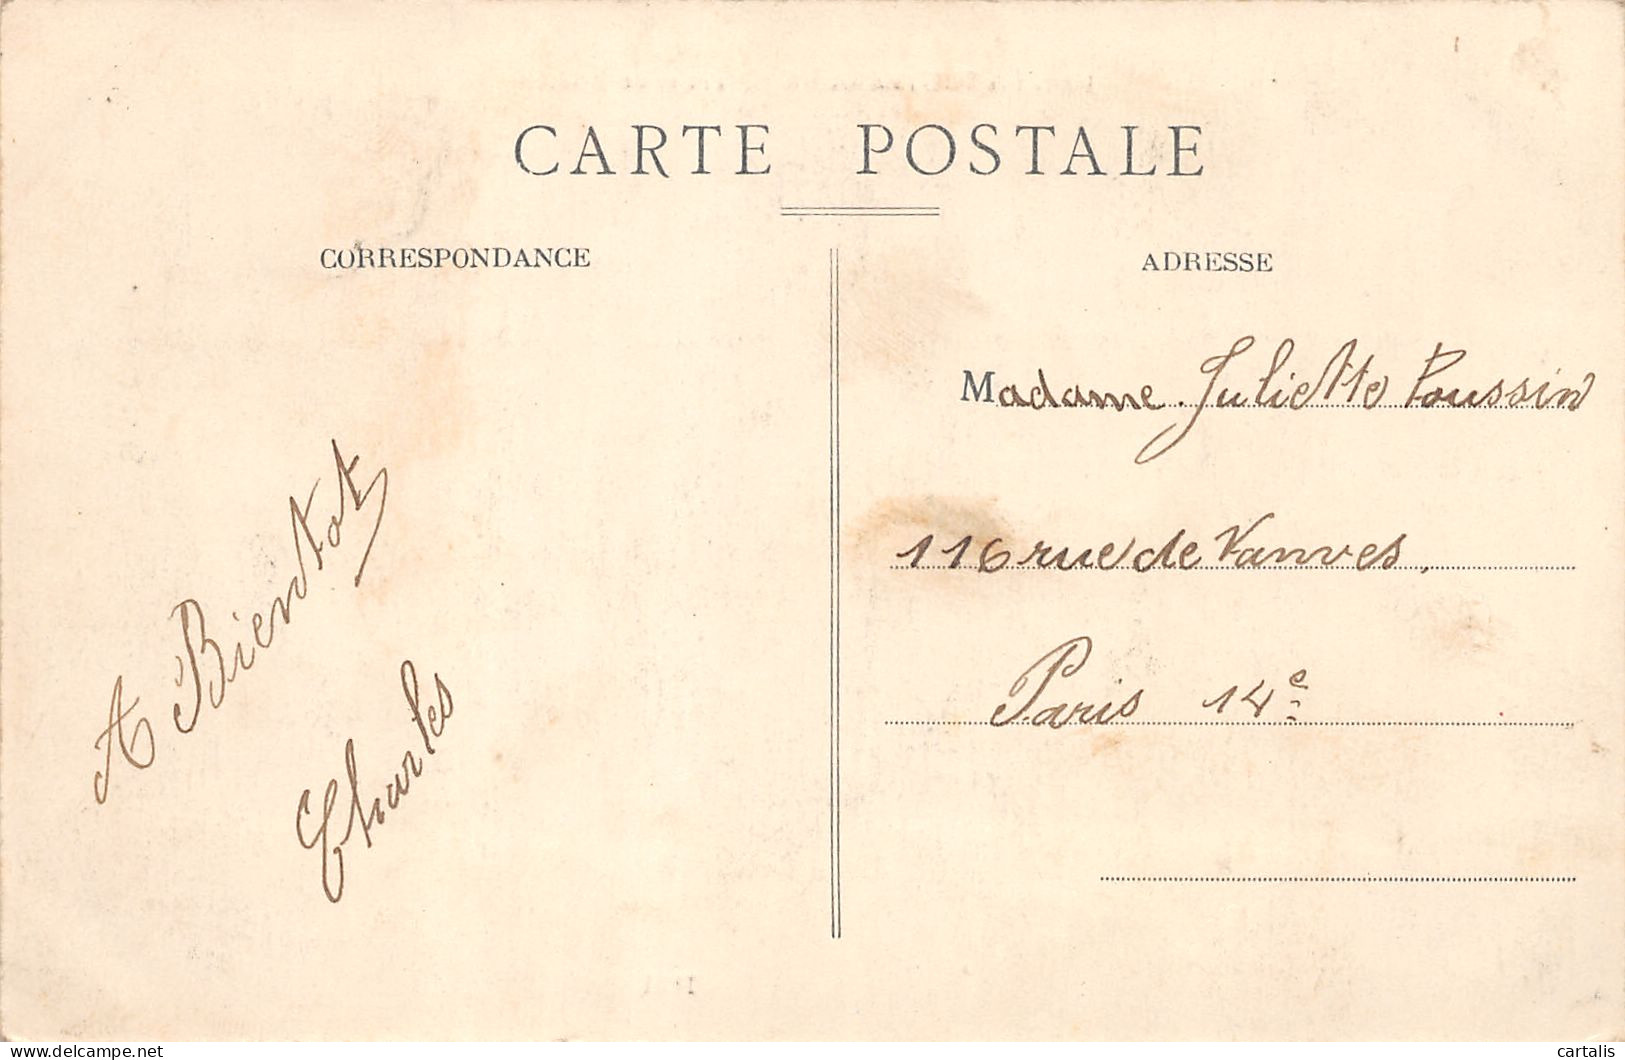 CARTE POSTALE
CORRESPONDANCE
ADRESSE
A Bientot
Charles
Madame Juliette Poussin
116 rue de Vanves.
Paris 14e
delcampe.net
cartalis